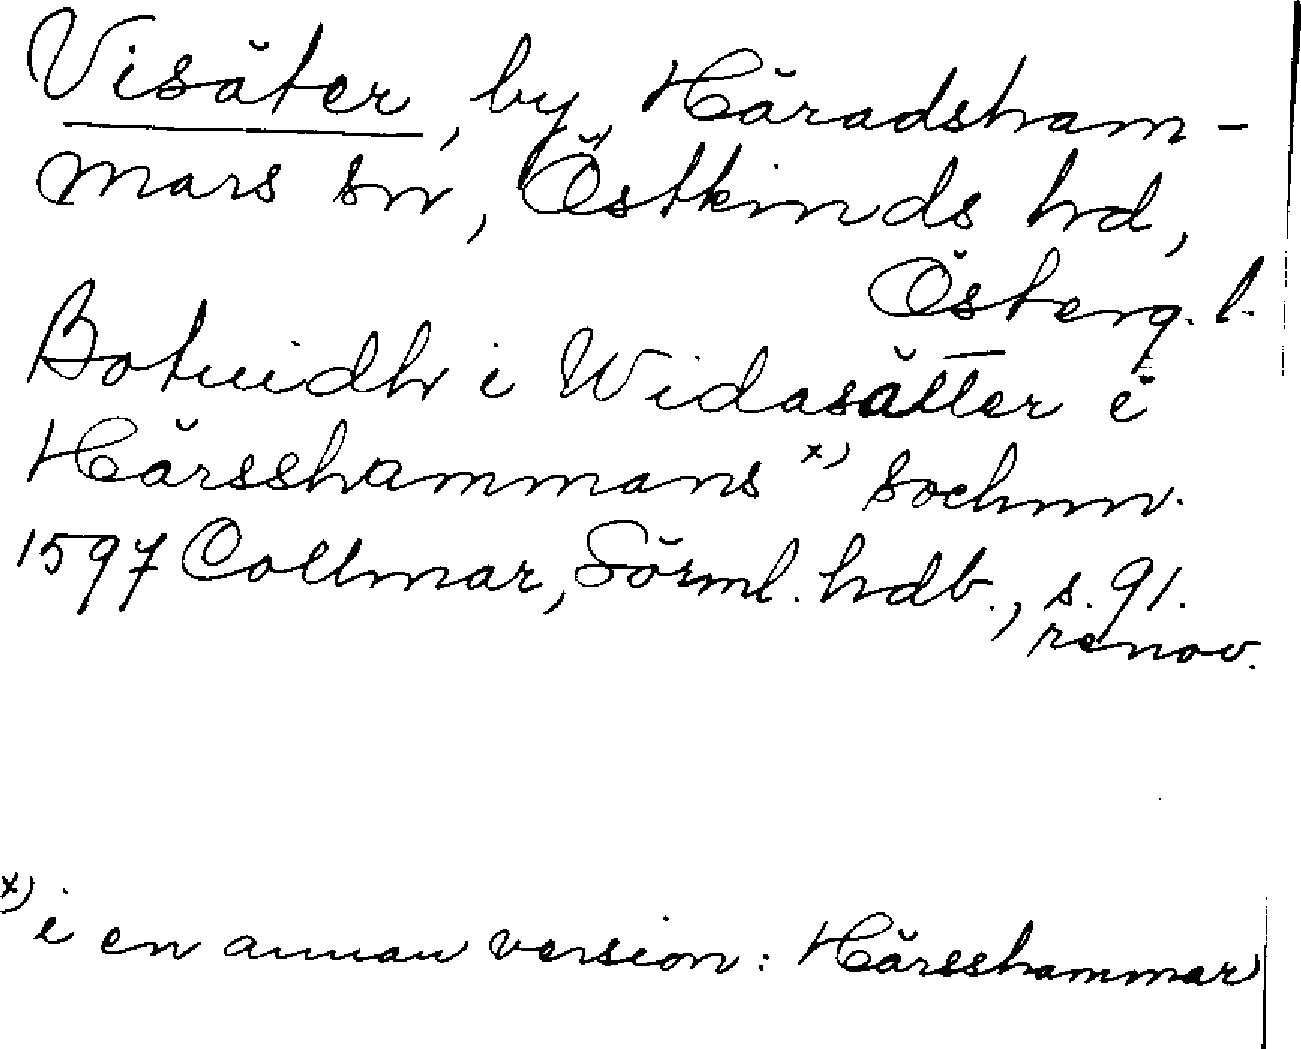 Visäter, by, Häradsham-
mars sn, Östkinds hd,
Österg. l.
Botuidh i Widasätter i
Härsshammans x) sochnn.
1597 Collmar, Sörml. hdb., s. 91.
renov.
x) i en annan version: Härsshammar